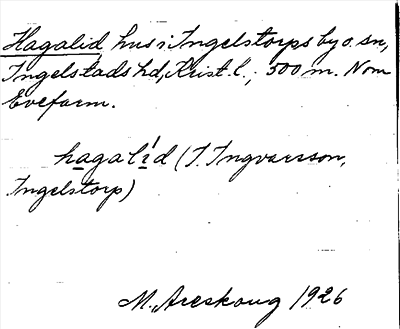 Hagalid, hus i Ingelstorps by o. sn,
Ingelstads hd, Krist. l.; 500 m. Nom
Evefarm.
hagalíd (I. Ingvarsson,
Ingelstorp)
M. Areskoug 1926